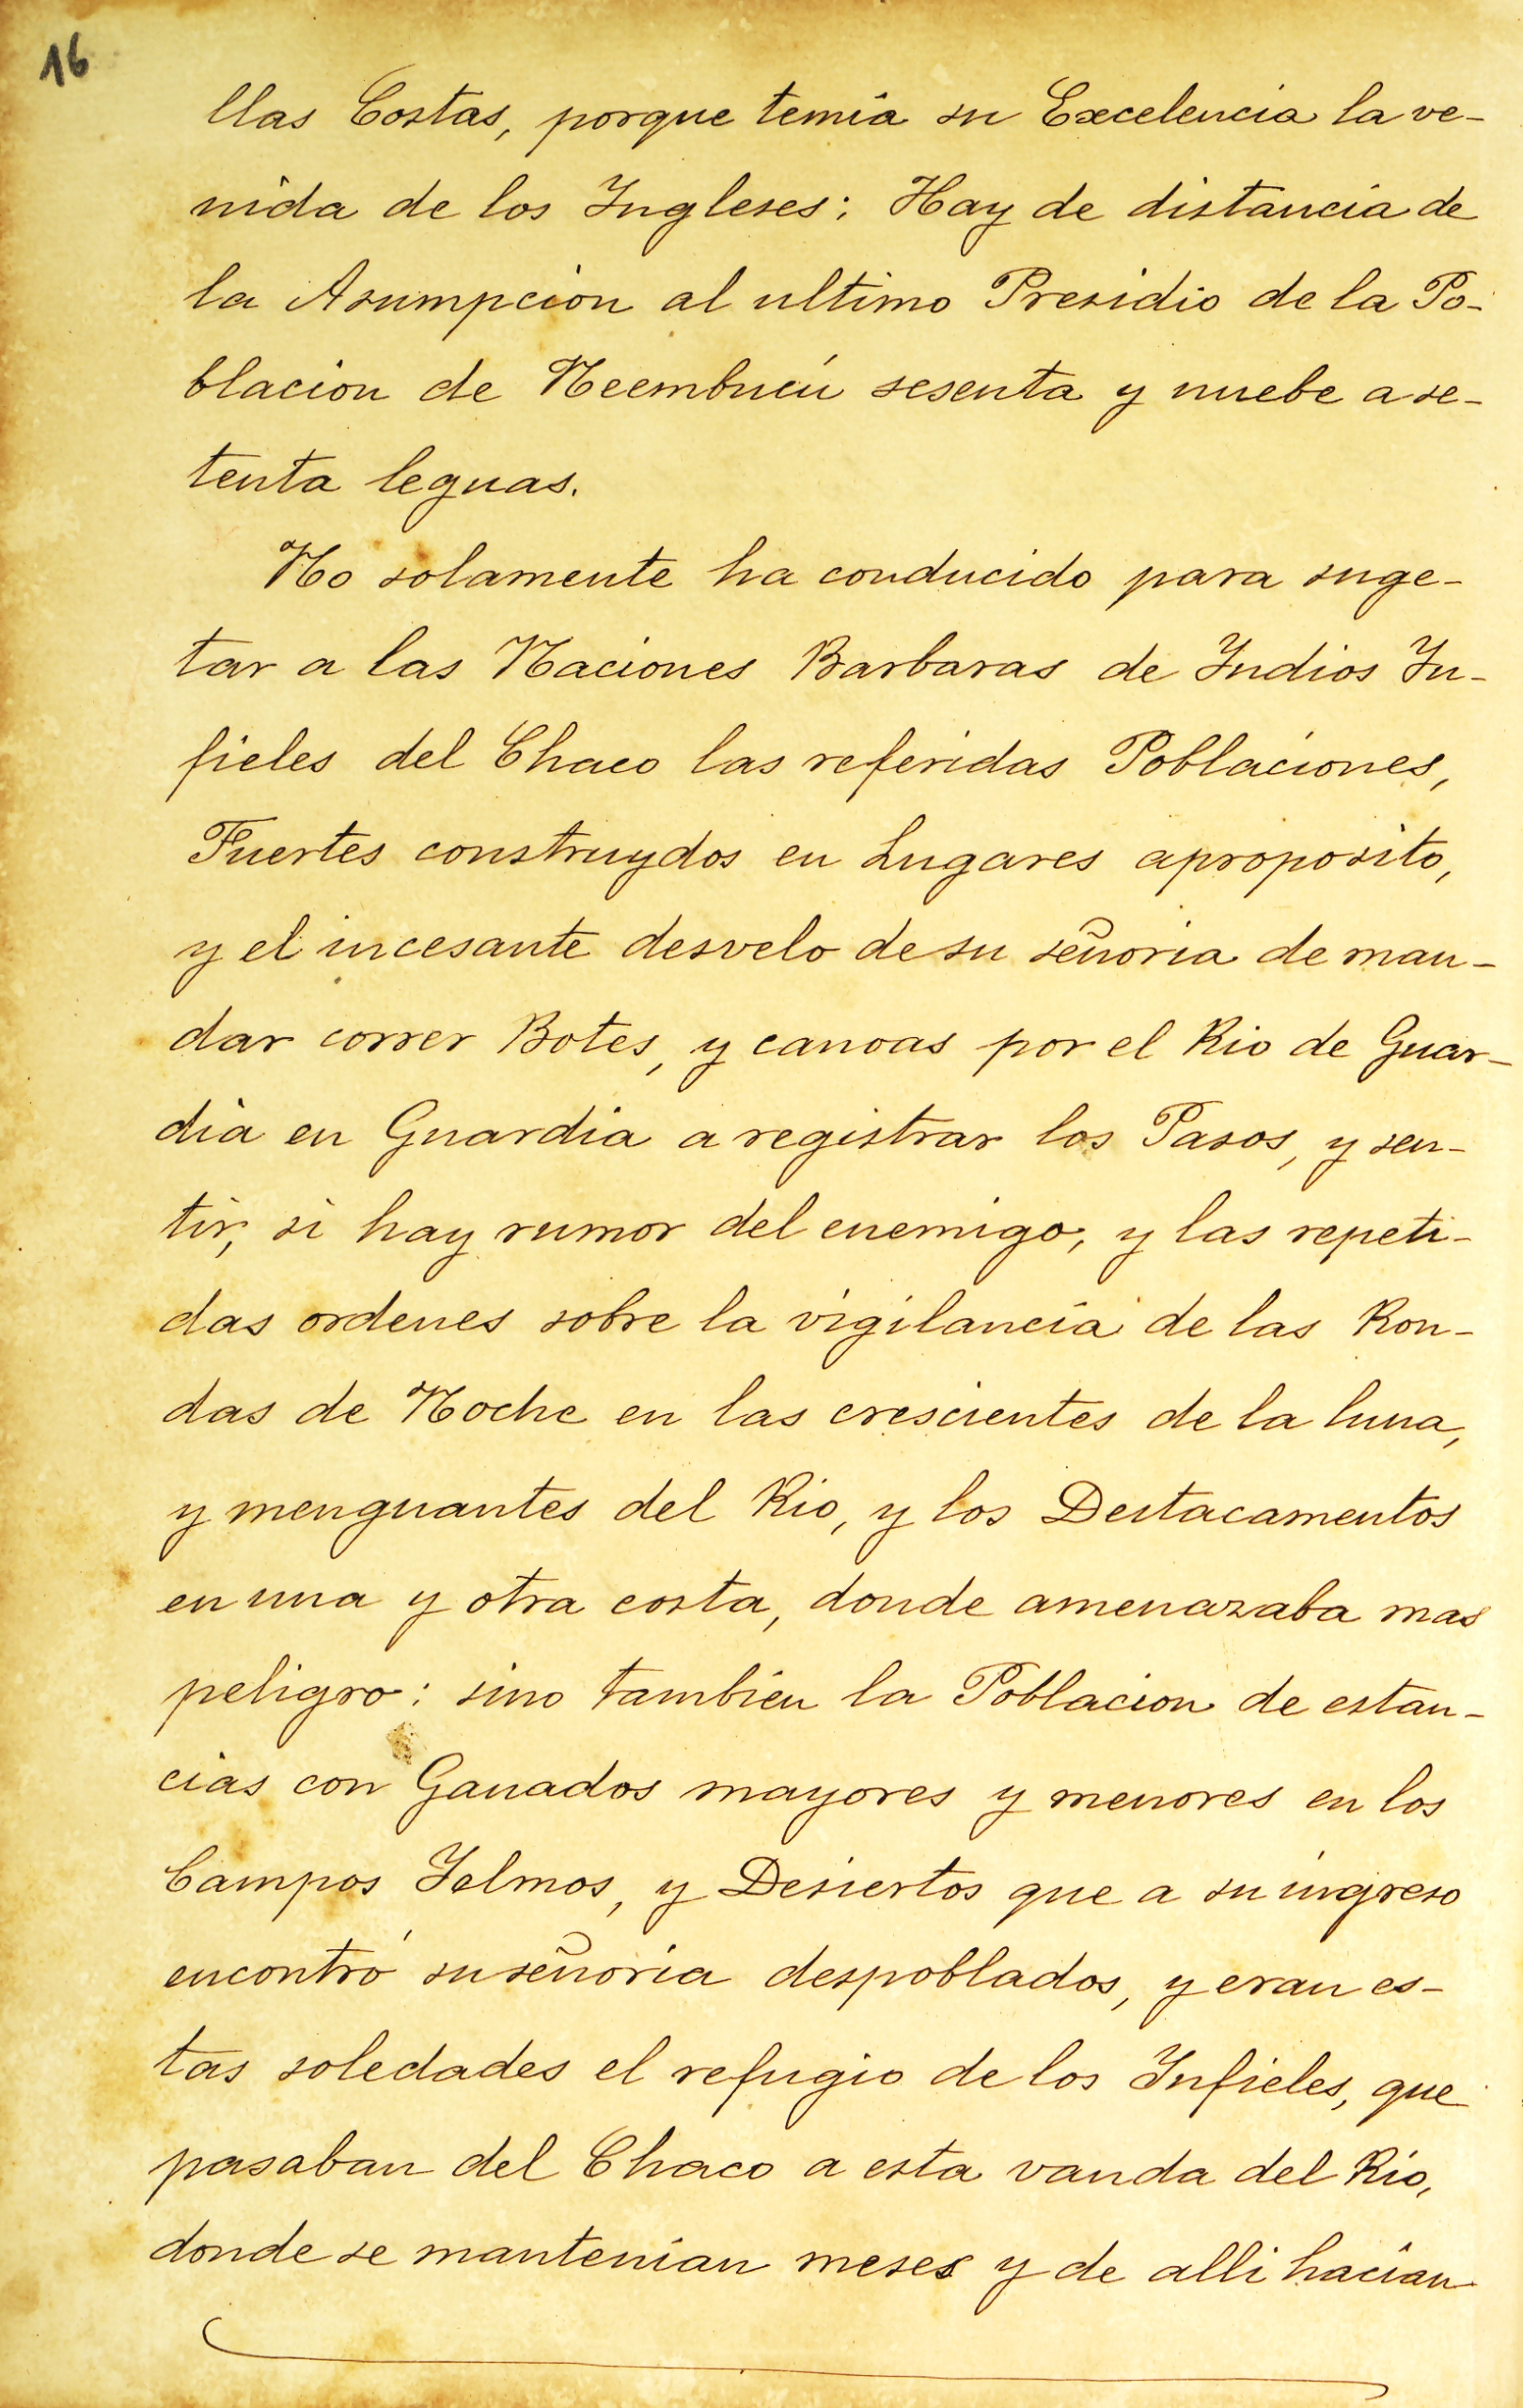 16
llas Costas, porque temia su Excelencia la ve-
nida de los Ingleses; Hay de distancia de
la Asumpcion al ultimo Presidio de la Po-
blacion de Neembucú sesenta y nuebe a se-
tenta leguas.
No solamente ha conducido para suge-
tar a las Naciones Barbaras de Indios In-
fieles del Chaco las referidas Poblaciones,
Fuertes construydos en Lugares aproposito,
y el incesante desvelo de su señoria de man-
dar correr Botes, y canoas por el Rio de Guar-
dia en Guardia a registrar los Pasos, y sen-
tir, si hay rumor del enemigo, y las repeti-
das ordenes sobre la vigilancia de las Ron-
das de Noche en las crescientes de la luna,
y menguantes del Rio, y los Destacamentos
en una y otra costa, donde amenazaba mas
peligro: sino tambien la Poblacion de estan-
cias con Ganados mayores y menores en los
Campos Yelmos, y Desiertos que a su ingreso
encontró su señoria despoblados, y eran es-
tas soledades el refugio de los Infieles, que
pasaban del Chaco a esta vanda del Rio,
donde se mantenian meses y de alli hacian